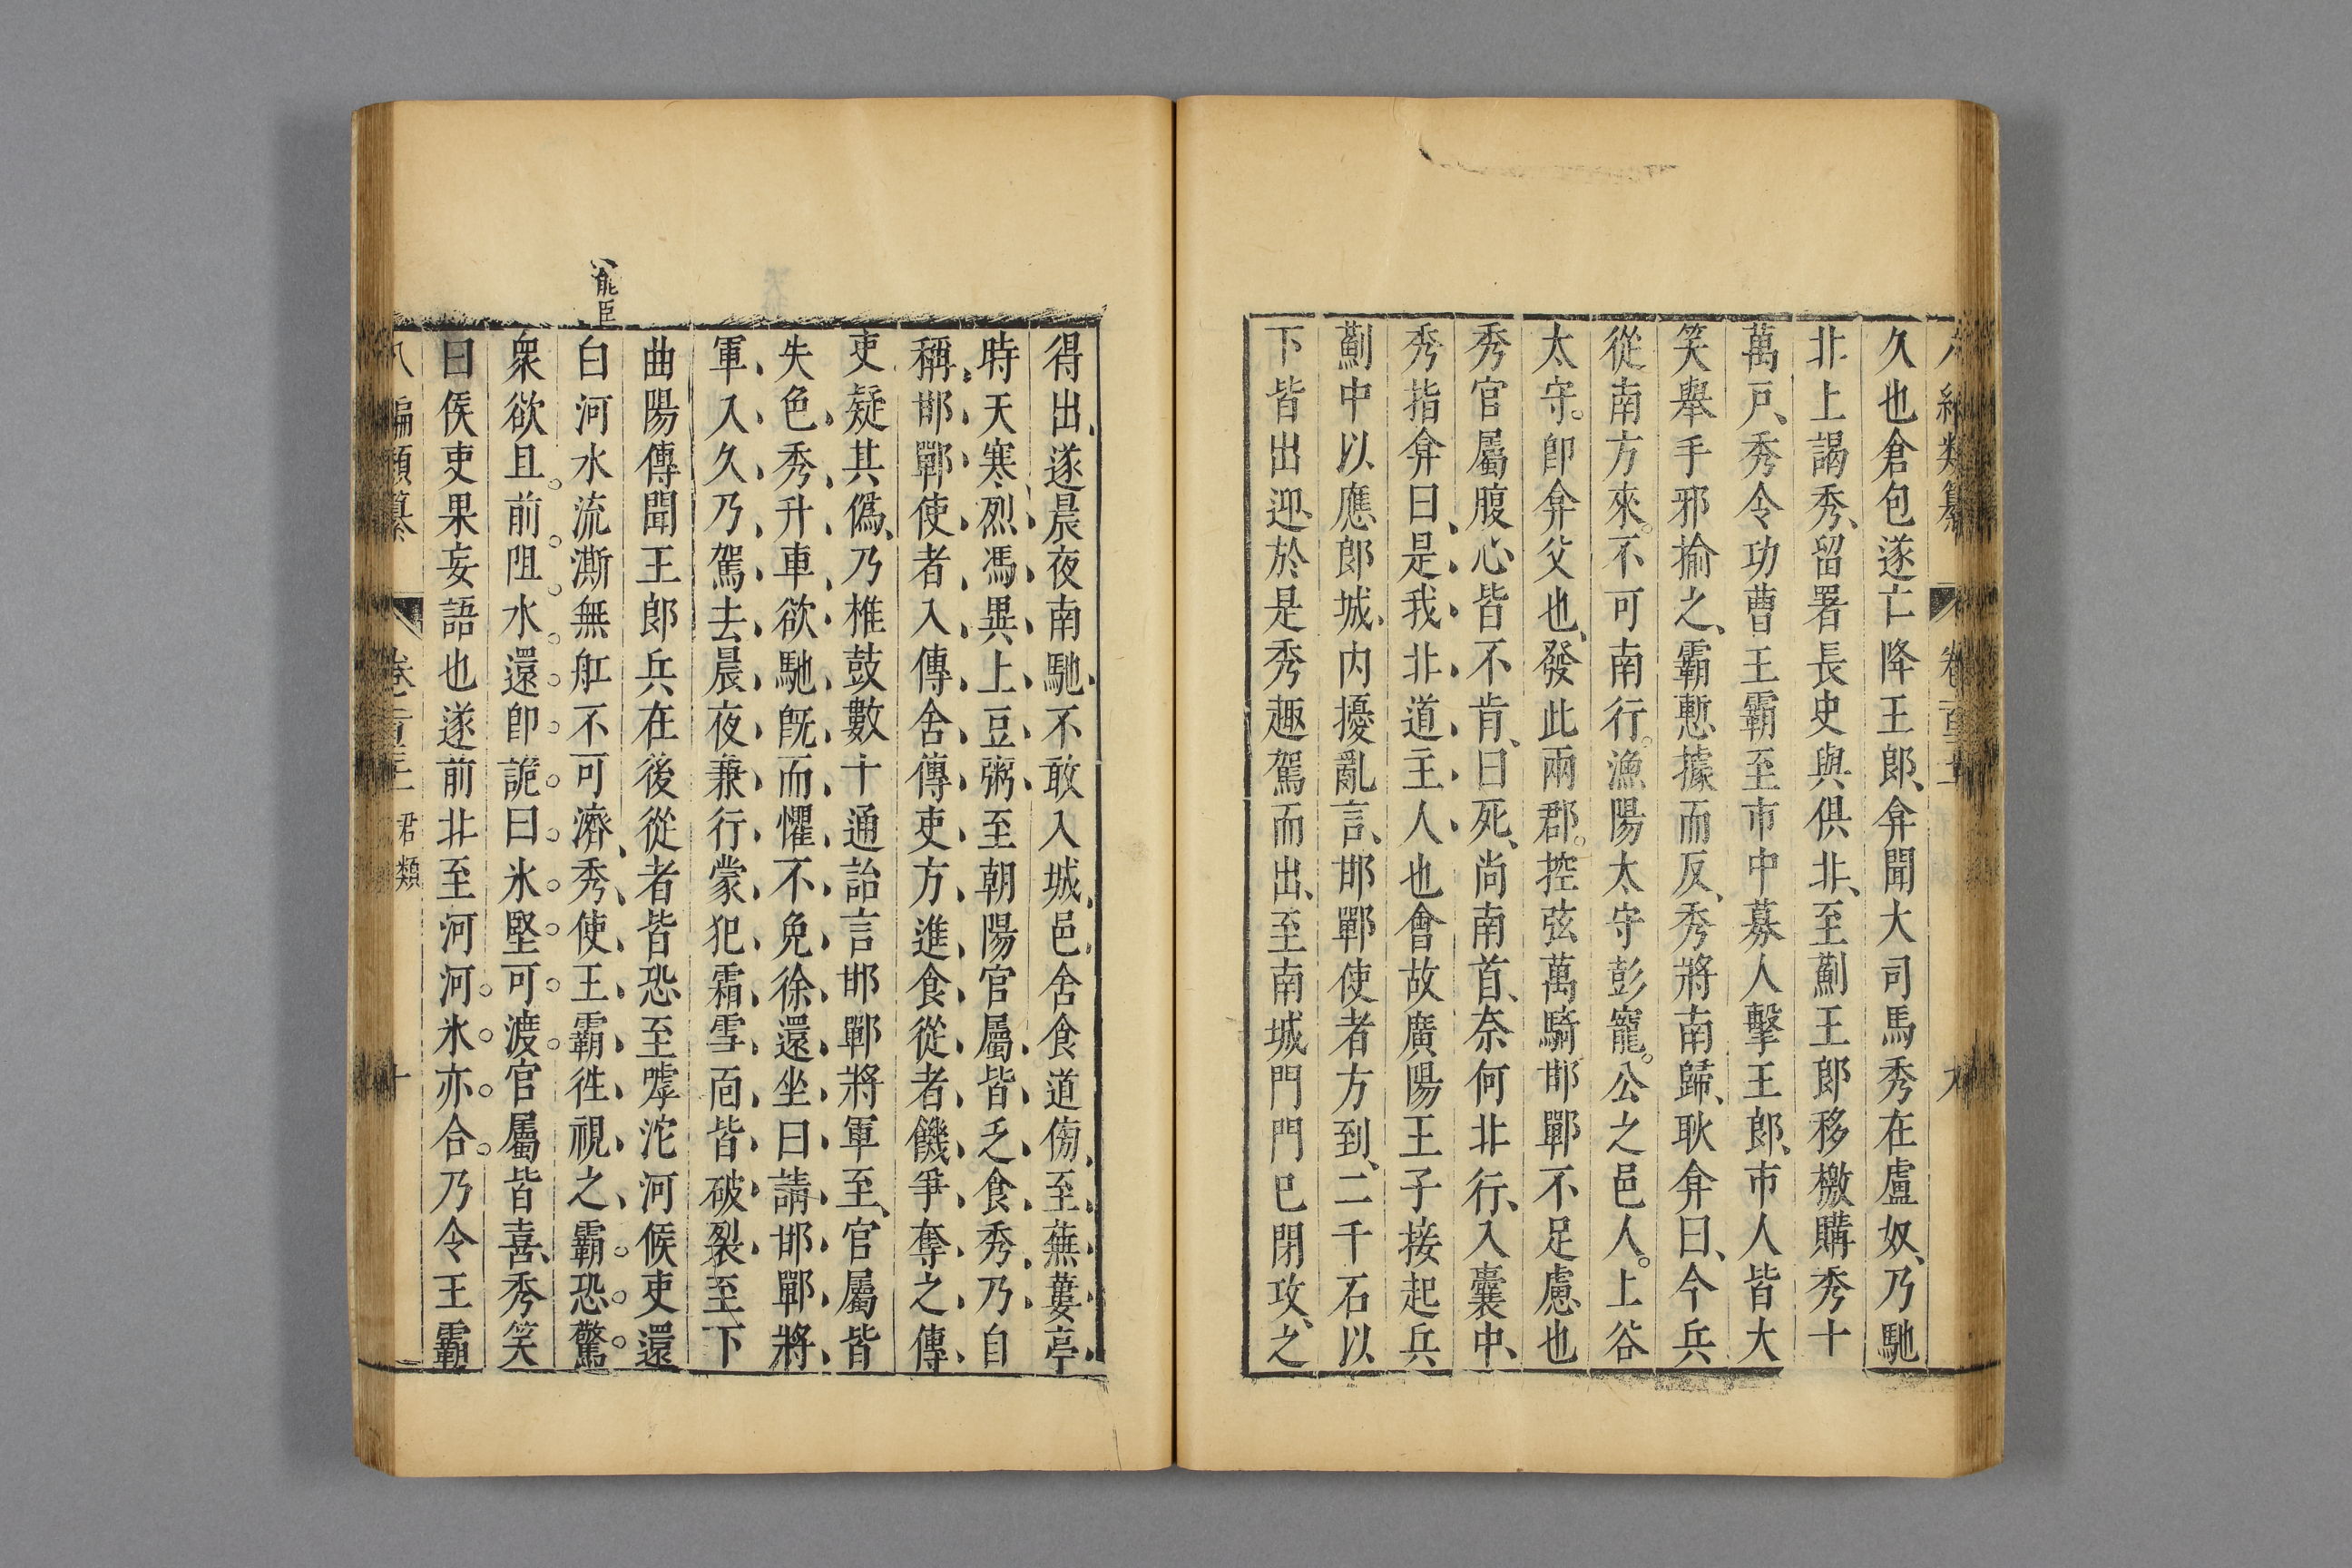 久也倉包遂亡降王郎、弇聞大司馬秀在盧奴、乃馳
北上謁秀、留署長史與俱北、至薊王郎移檄購秀十
萬戸、秀令功曹王霸至市中募人擊王郎、市人皆大
笑舉手邪揄之、霸慙懅而反、秀將南歸、耿弇曰、今兵
從南方來。不可南行。漁陽太守彭寵。公之邑人。上谷
太守。卽弇父也、發此兩郡。控弦萬騎邯鄲不足慮也
秀官屬腹心皆不肯、曰死、尚南首、奈何北行、入囊中、
秀指弇曰、是、我、北、道、主、人、也會故廣陽王子接起兵
薊中以應郎城、內擾亂言、邯鄲使者方到、二千石以
下皆出迎、於是秀趣駕而出、至南城門門已閉攻、之
得出、遂晨夜南馳、不敢入城、邑、舍食道傍、至、蕪、蔞、亭、
時天寒、烈、馮、異、上、豆、粥、至朝陽官屬、皆、乏、食、秀、乃、自
稱、邯、鄲、使、者、入、傳、舍、傳、吏、方、進、食、從、者、饑、爭、奪、之、傳、
吏疑其僞、乃椎鼓數十通詒言邯鄲將軍至、官屬皆
失、色、秀、升、車、欲、馳、旣、而、懼、不、免、徐、還、坐、曰、請、邯、鄲、將、
軍、入、久、乃、駕、去、晨、夜、兼、行、蒙、犯、霜、雪、面、皆、破、裂、至下
曲陽傳聞王郎兵在後從者皆恐至嘑沱河候吏還
白河水流澌無舡不可濟、秀、使、王、霸、徃、視、之、霸。恐。驚。
衆欲且。前。阻。水。還。卽。詭。曰。氷。堅。可。渡。官屬皆喜、秀笑
曰侯吏果妄語也遂前北至河河。氷。亦。合。乃令王霸
能臣
君類